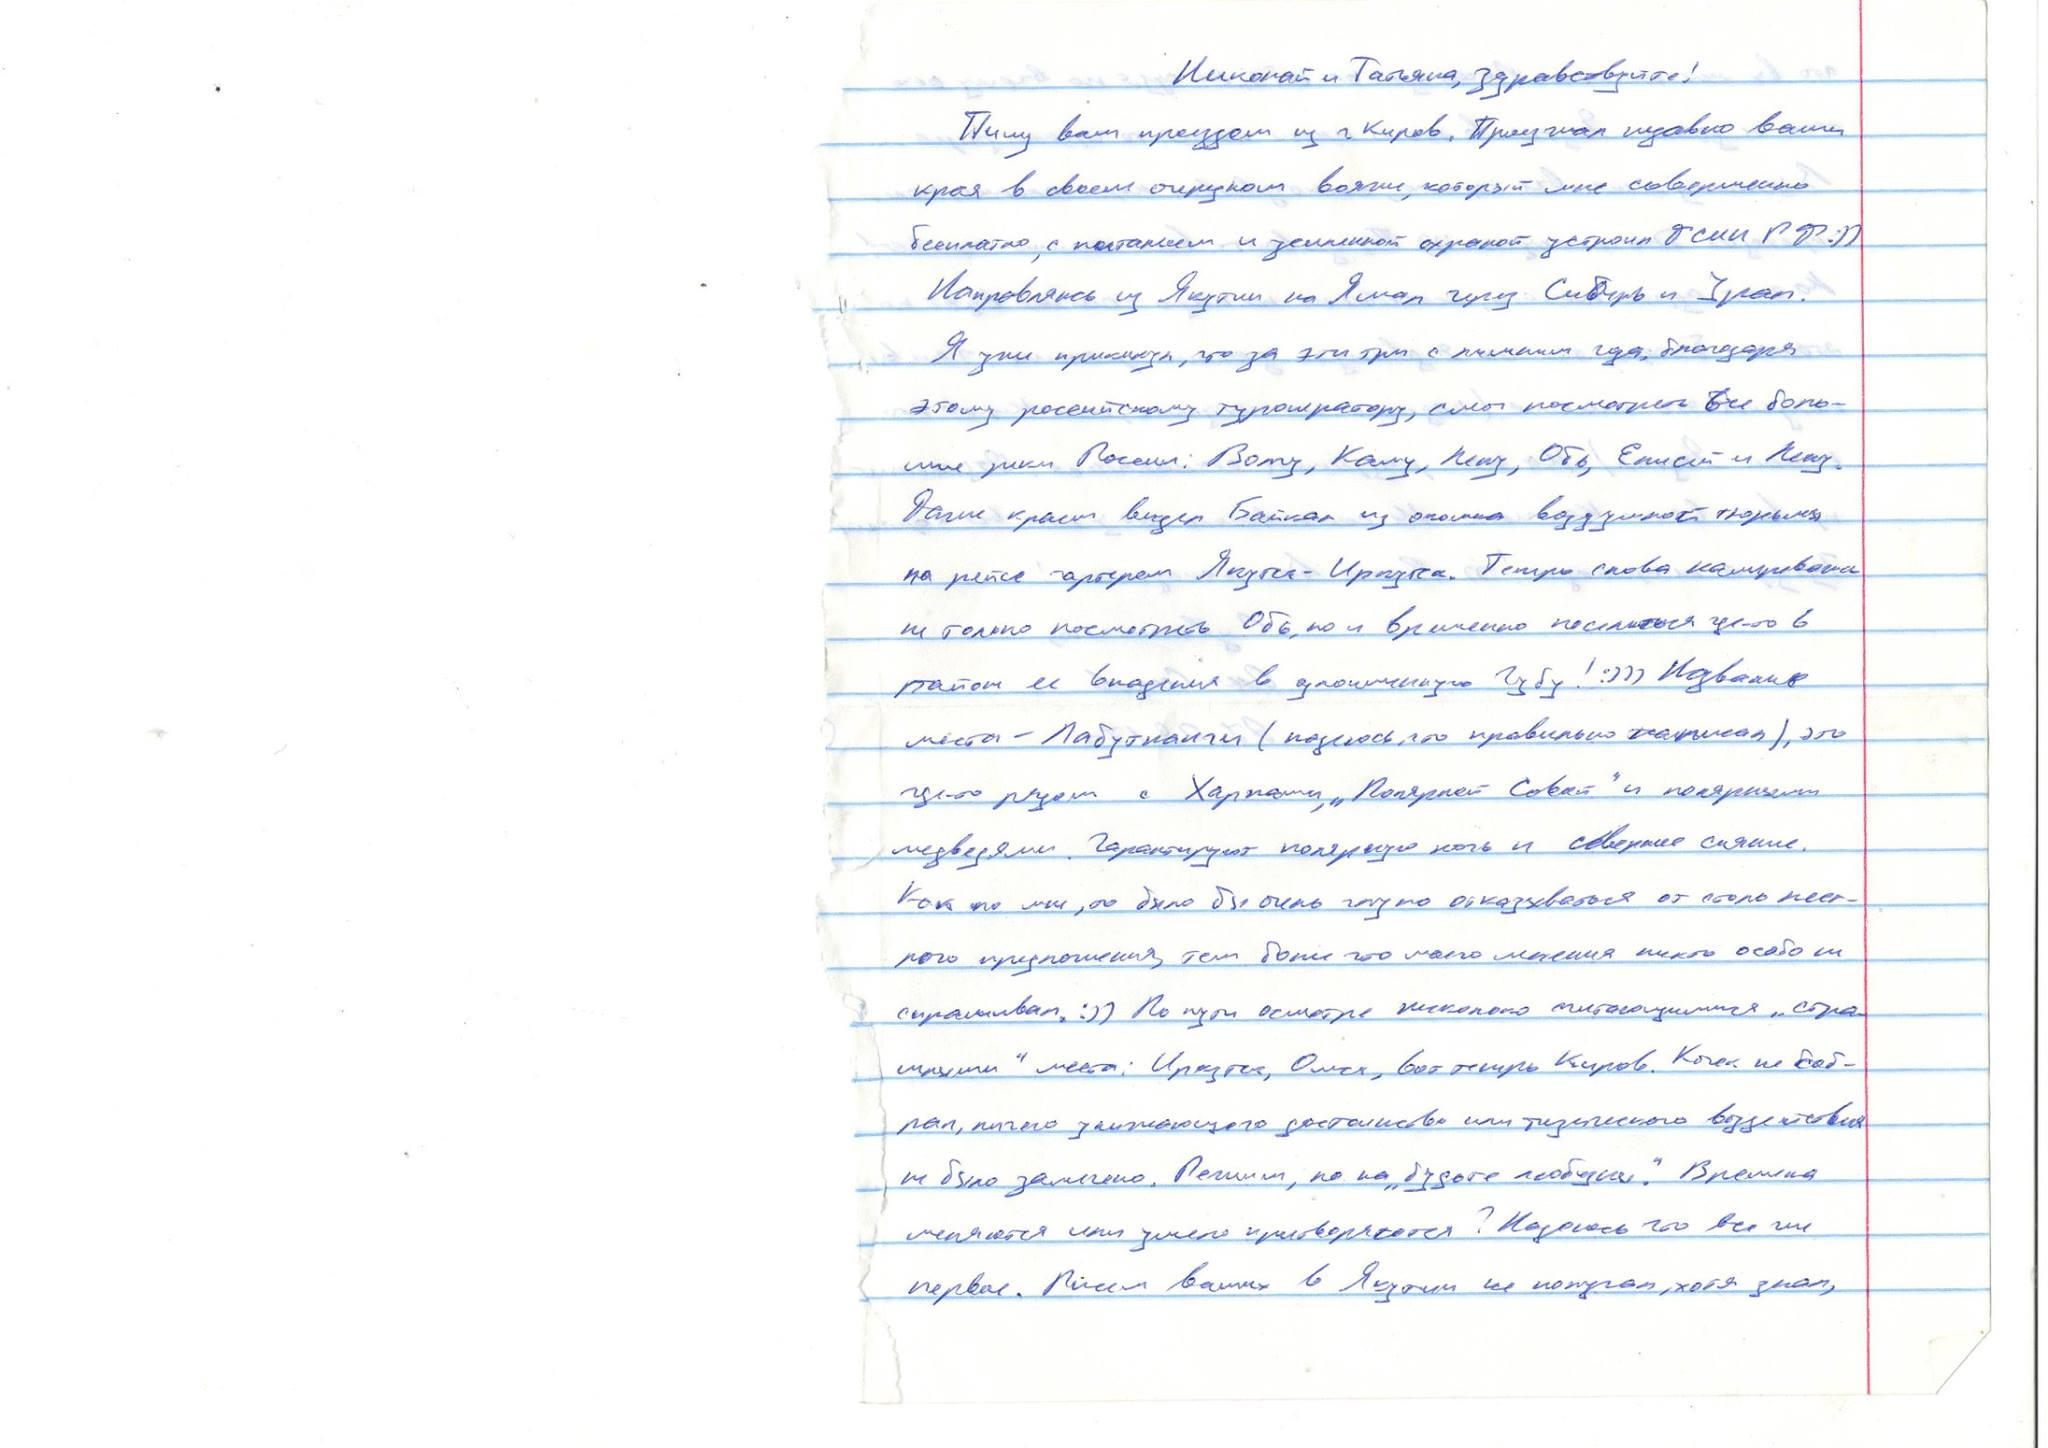 Николай и Татьяна, здравствуйте!
Пишу вам проездом из г Киров. Проезжал недавно ваши
края в своем очередном вояже, который мне совершенно
бесплатно, с питанием и усиленной охраной устроил ФСИН РФ :))
Направляюсь из Якутии на Ямал через Сибирь и Урал.
Я уже прикинул, что за эти три с лишним года, благодаря
этому российскому туроператору, смог посмотреть все боль-
шие реки России: Волгу, Каму, Лену, Обь, Енисей и Лену.
Даже краем видел Байкал из окошка воздушной тюрьмы
на рейсе чартером Якутск - Иркутск. Теперь снова намереваюсь
не только посмотреть Обь, но и временно поселиться где-то в
районе ее впадения в одноименную Губу! :))) Название
места - Лабутнанги (надеюсь, что правильно написал), это
где-то рядом с Харпами, „Полярной Совой" и полярными
медведями. Гарантируют полярную ночь и северное сияние.
Как по мне, то было бы очень глупо отказываться от столь лест-
ного предложения, тем более что моего мнения никто особо не
спрашивал. :)) По пути осмотре несколько считающимися „стра-
шными" места: Иркутск, Омск, вот теперь Киров. Кочек не
ничего унижающего достоинство или физического воздействия
не было замечено. Режим, но на „будьте любезны". Времена
меняются или умело притворяются? Надеюсь что все же
первое. Писем ваших в Якутии не получал, хотя знал,